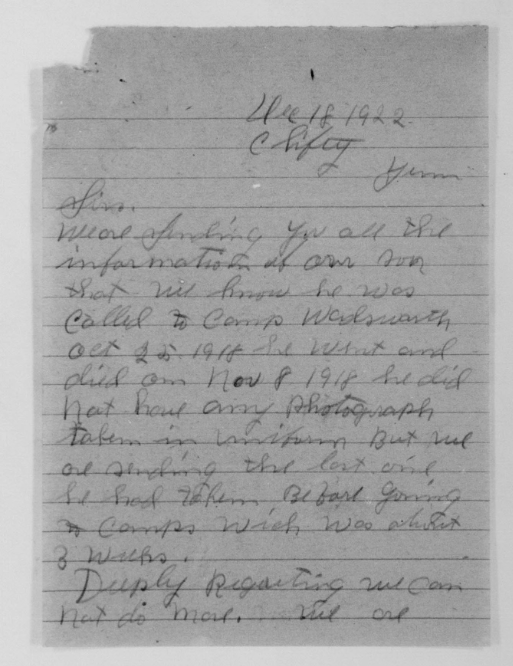 Dec 18 1922
Clifty
Tenn
Sirs.
We are Sending you all the
information of our son
that we know he was
Called to Camp Wadsworth
Oct 25 1918 he went and
died on Nov 8 1918 he did
Not have any Photograph
taken in uniform But we
are sending the last one
he had taken Before going
to Camps wich was about
3 weeks.
Deeply Regretting we can
Not do more. We are